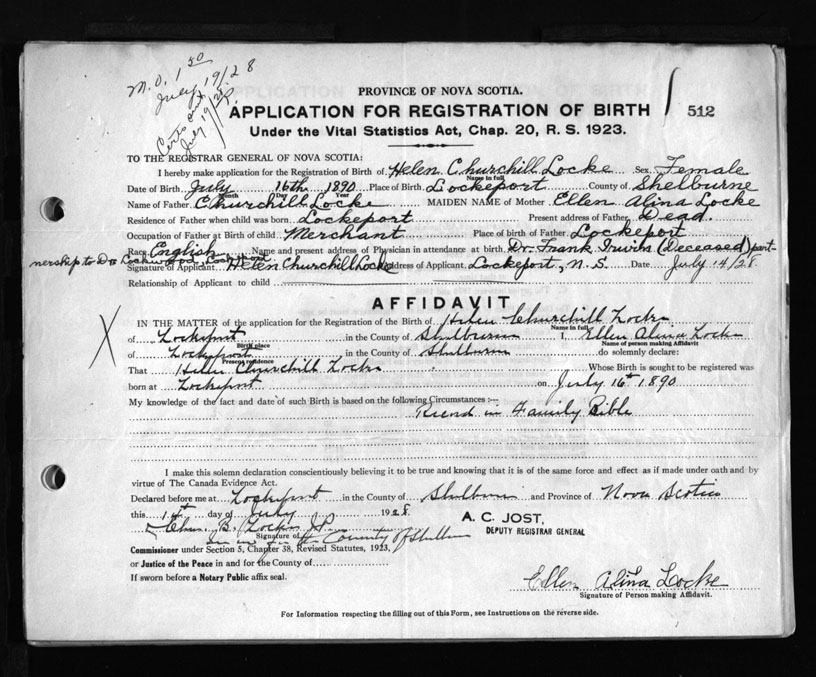 M.O. 1 50
July 19/28
Certs and
July 19/28
PROVINCE OF NOVA SCOTIA.
APPLICATION FOR REGISTRATION OF BIRTH
512
Under the Vital Statistics Act, Chap. 20, R. S. 1923.
TO THE REGISTRAR GENERAL OF NOVA SCOTIA:
I hereby make application for the Registration of Birth of Helen Churchill Locke Sex Female
Name in full
Date of Birth July 16th 1890 Place of Birth Lockeport County of Shelburne
Month Day Year
Name of Father Churchill Locke MAIDEN NAME of Mother Ellen Alina Locke
Residence of Father when child was born Lockeport Present address of Father Dead.
Occupation of Father at Birth of child Merchant Place of birth of Father Lockeport
Race English Name and present address of Physician in attendance at birth Dr. Frank Irwin (deceased) part-
nership to Dr Lockwood, Lockeport
Signature of Applicant Helen Churchill Locke Address of Applicant Lockeport, N.S. Date July 14/28
Relationship of Applicant to child
AFFIDAVIT
IN THE MATTER of the application for the Registration of the Birth of Helen Churchill Locke
Name in full
of Lockeport in the County of Shelburne I, Ellen Alina Locke
Birth place Name of person making Affidavit
of Lockeport in the County of Shelburne do solemnly declare:
Present residence
That Helen Churchill Locke Whose Birth is sought to be registered was
born at Lockeport on July 16th 1890
My knowledge of the fact and date of such Birth is based on the following Circumstances :—
Record in Family Bible
I make this solemn declaration conscientiously believing it to be true and knowing that it is of the same force and effect as if made under oath and by
virtue of The Canada Evidence Act.
Declared before me at Lockeport in the County of Shelburne and Province of Nova Scotia
this day of July 1928
A. C. JOST,
DEPUTY REGISTRAR GENERAL
B. Locke J.P.
Signature of
in the County of Shelburne
Commissioner under Section 5, Chapter 38, Revised Statutes, 1923,
or Justice of the Peace in and for the County of
If sworn before a Notary Public affix seal.
Ellen Alina Locke
Signature of Person making Affidavit.
For Information respecting the filling out of this Form, see Instructions on the reverse side.